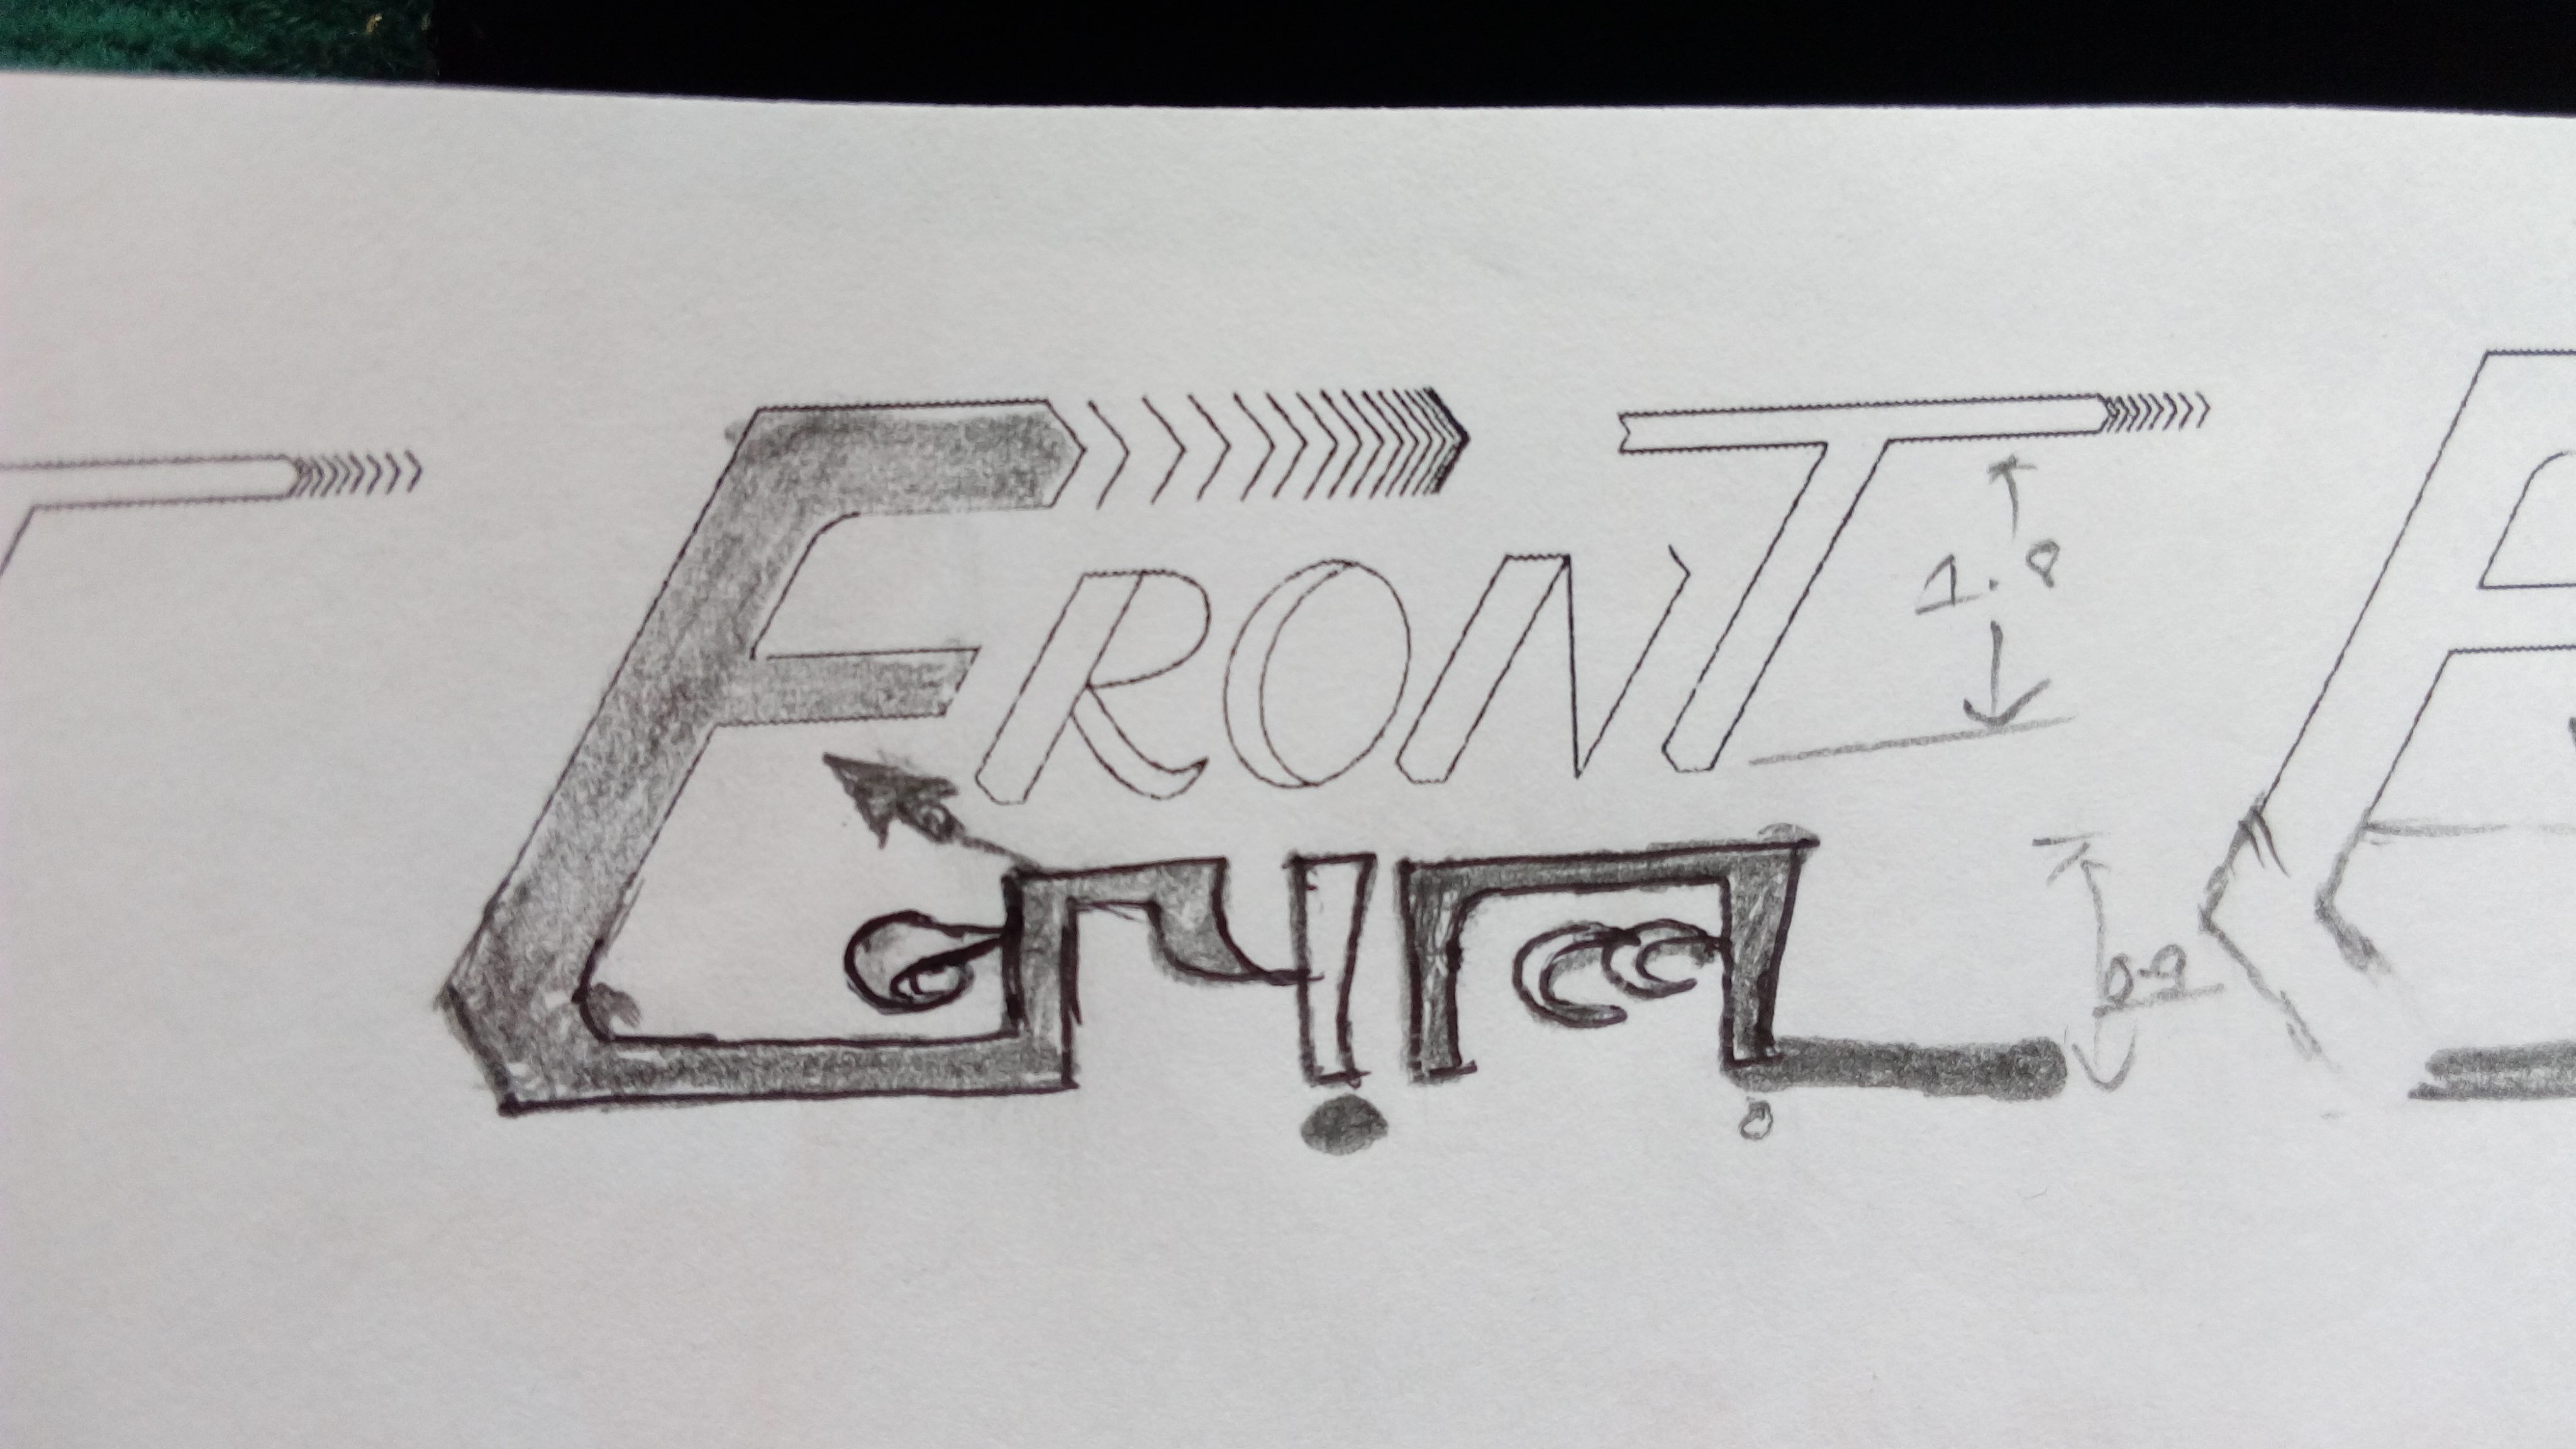 FRONT
1.8
नेपाल
0.9